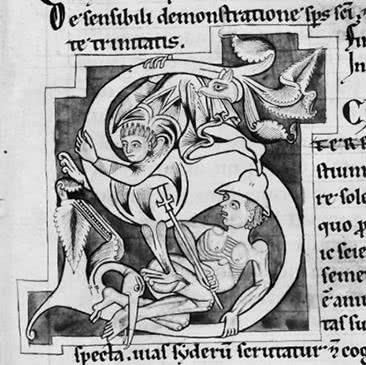 De sensibili demonstratione sp̄s sc̄i ⁊
te trinitatis.
In
stium
re sole
quo p
ic scie
semen
tas su
specta. uias syderū scrutatur ⁊ cog